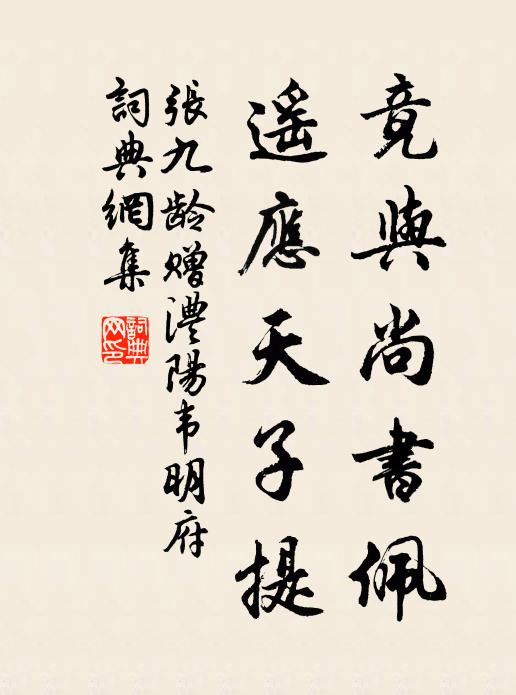 竟與尚書佩
遥應天子提
張九齡赠澧陽韦明府
詞典網集
詞典网印